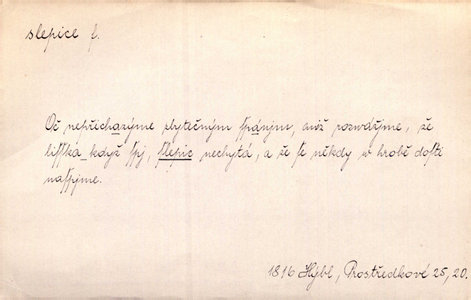 slepice f.
Oč nepřicházýme zbytečným spánjm, aniž rozwážýme, že
lisstká když spj, slepic nechytá, a že se někdy w hrobě dosti
naspjme.
1816 Hýbl, Prostředkové 25, 20.